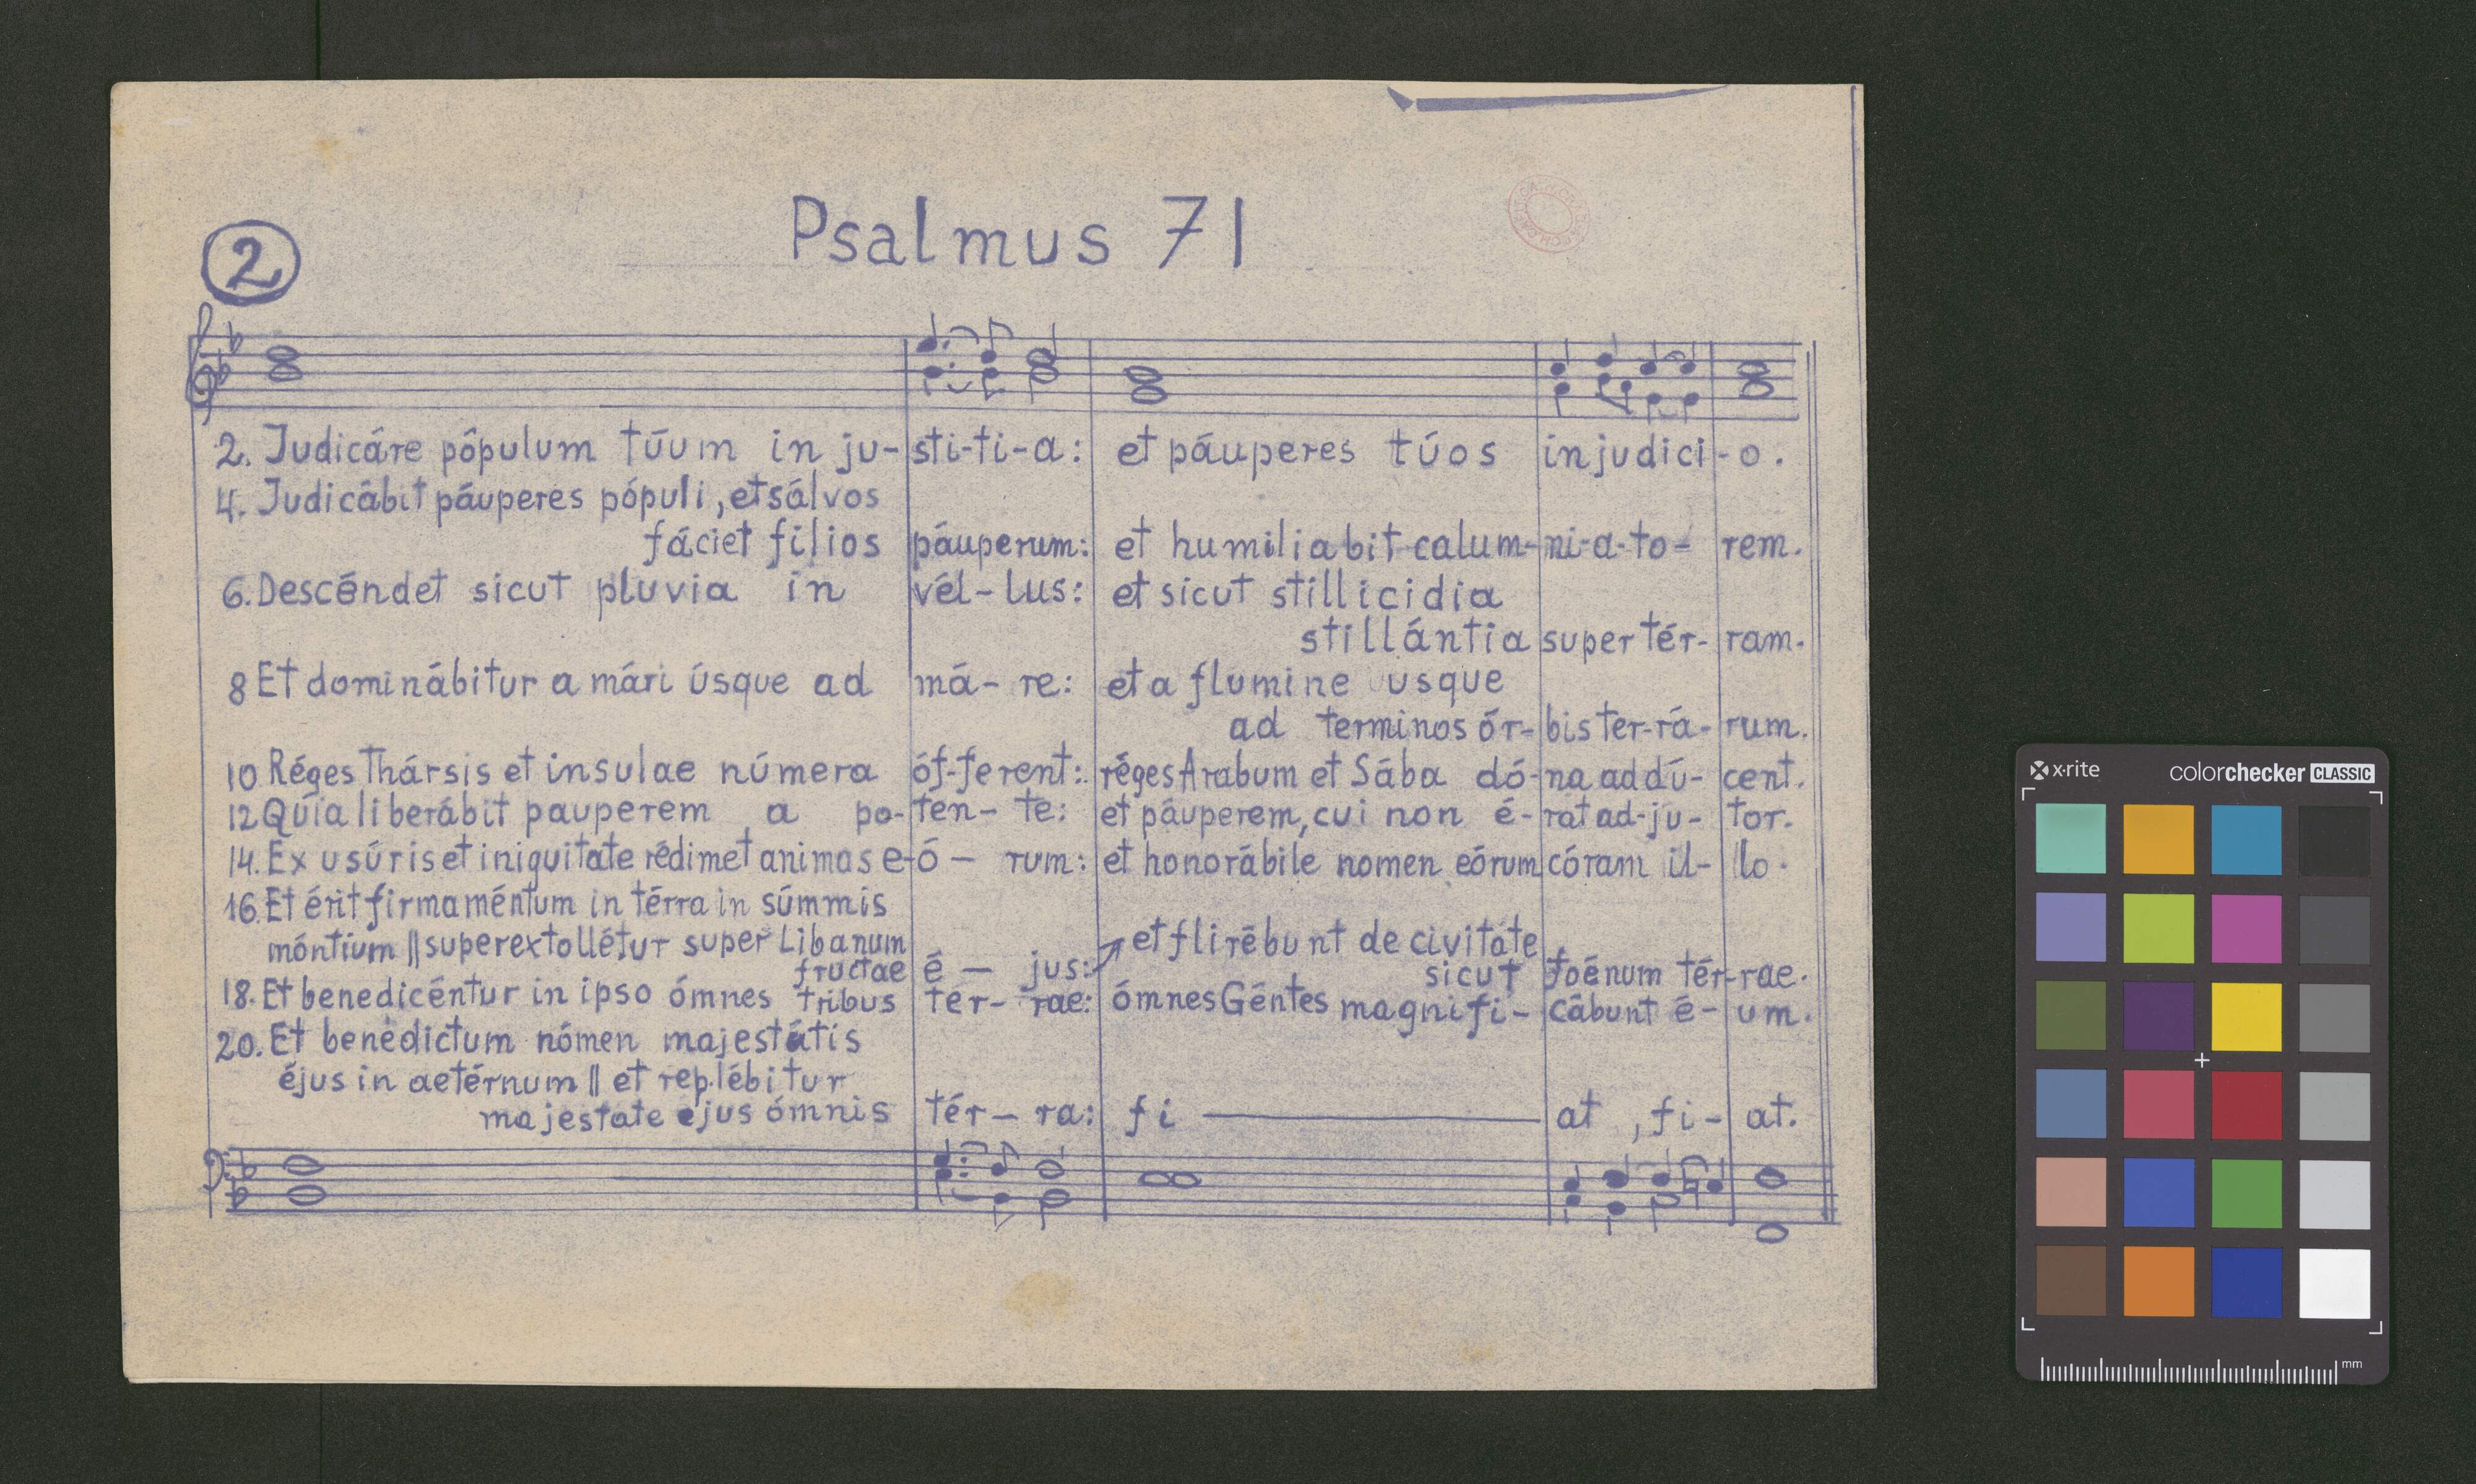 Psalmus 71
2
2. Judicáre pópulum túum in ju- sti-ti-a: et páuperes túos in judici - o.
4. Judicábit páuperes pópuli, et sálvos
fáciet filios páuperum: et humiliabit calum- ni-a-to- rem.
6. Descéndet sicut pluvia in vél- lus: et sicut stillicidia
stillántia super tér- ram.
8 Et dominábitur a mári úsque ad má- re: et a flumine usque
ad terminos ór- bis ter-rá- rum.
10 Réges Thársis et insulae númera óf-ferent: réges Arabum et Sába dó- na ad dú- cent.
12 Quía liberábit pauperem a po- ten- te: et páuperem, cui non é- rat ad-ju- tor.
14. Ex usúris et iniquitate rédimet animas e- ó - rum: et honorábile nomen eórum córam il- lo.
16. Et érit firmaméntum in térra in súmmis
móntium || superextollétur super Libanum et flirébunt de civitáte
fructae é - jus: sicut foénum tér- rae.
18. Et benedicéntur in ipso ómnes tribus tér- rae: ómnes Géntes magnifi- cábunt é- um.
20. Et benédictum nómen majestátis
éjus in aetérnum || et replébitur
majestate ejus ómnis tér- ra: fi at , fi- at.
x·rite colorchecker CLASSIC
mm